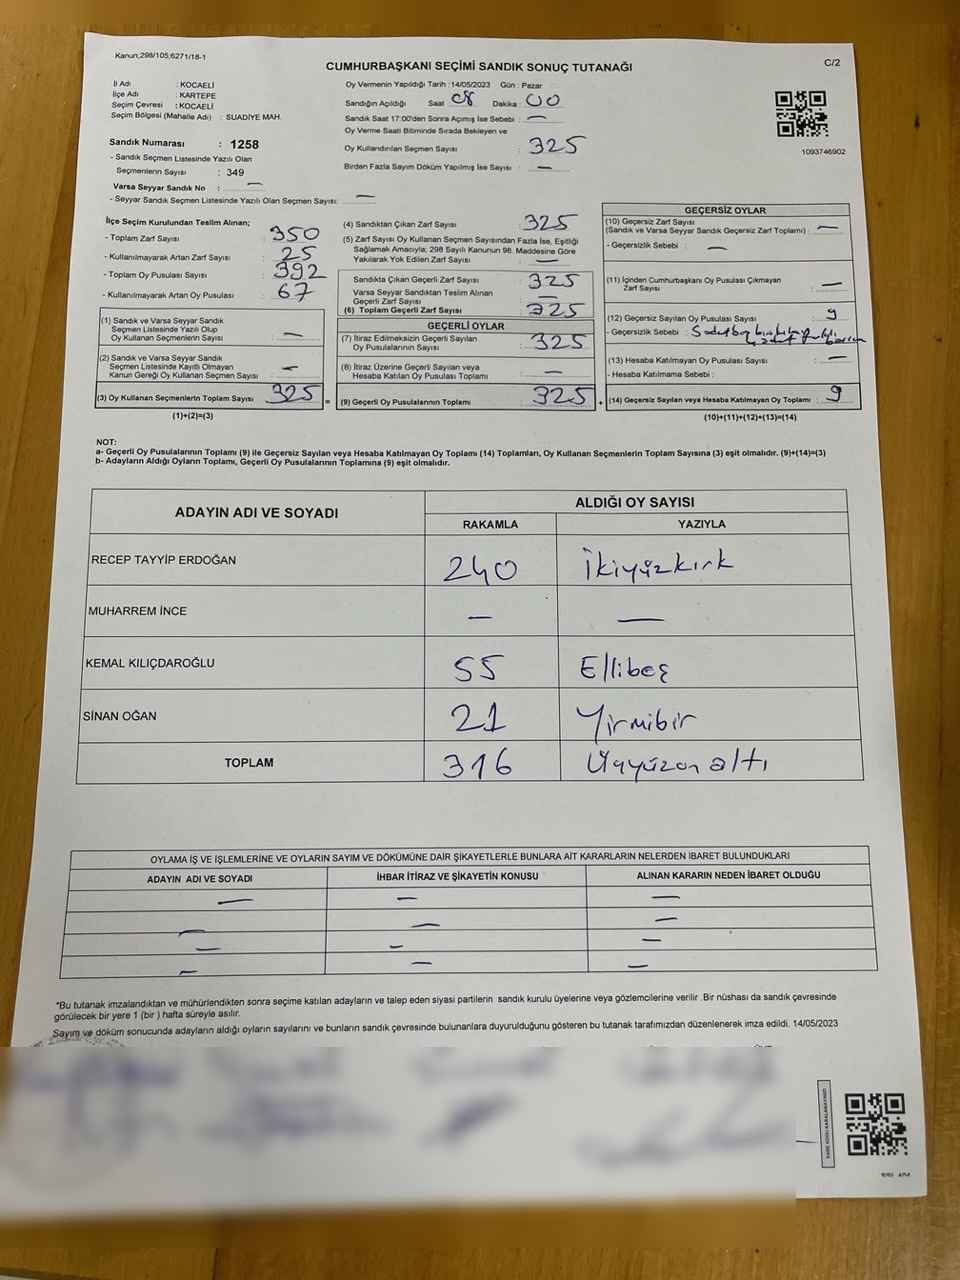 Kanun;298/105;6271/18-1
CUMHURBAŞKANI SEÇİMİ SANDIK SONUÇ TUTANAĞI
C/2
İl Adı : KOCAELİ
İlçe Adı : KARTEPE
Seçim Çevresi : KOCAELİ
Seçim Bölgesi (Mahalle Adı) : SUADİYE MAH.
Sandık Numarası : 1258
- Sandık Seçmen Listesinde Yazılı Olan
Seçmenlerin Sayısı : 349
Varsa Seyyar Sandık No : —
- Seyyar Sandık Seçmen Listesinde Yazılı Olan Seçmen Sayısı: —
Oy Vermenin Yapıldığı Tarih :14/05/2023 Gün : Pazar
Sandığın Açıldığı Saat 08 Dakika 00
Sandık Saat 17:00'den Sonra Açımış İse Sebebi : —
Oy Verme Saati Bitiminde Sırada Bekleyen ve
Oy Kullandırılan Seçmen Sayısı : 325
Birden Fazla Sayım Döküm Yapılmış İse Sayısı : —
1093746902
İlçe Seçim Kurulundan Teslim Alınan;
- Toplam Zarf Sayısı : 350
- Kullanılmayarak Artan Zarf Sayısı : 25
- Toplam Oy Pusulası Sayısı : 392
- Kullanılmayarak Artan Oy Pusulası : 67
(1) Sandık ve Varsa Seyyar Sandık
Seçmen Listesinde Yazılı Olup
Oy Kullanan Seçmenlerin Sayısı : —
(2) Sandık ve Varsa Seyyar Sandık
Seçmen Listesinde Kayıtlı Olmayan
Kanun Gereği Oy Kullanan Seçmen Sayısı : —
(3) Oy Kullanan Seçmenlerin Toplam Sayısı : 325 =
(1)+(2)=(3)
(4) Sandıktan Çıkan Zarf Sayısı : 325
(5) Zarf Sayısı Oy Kullanan Seçmen Sayısından Fazla İse, Eşitliği
Sağlamak Amacıyla, 298 Sayılı Kanunun 98. Maddesine Göre
Yakılarak Yok Edilen Zarf Sayısı : —
Sandıkta Çıkan Geçerli Zarf Sayısı : 325
Varsa Seyyar Sandıktan Teslim Alınan
Geçerli Zarf Sayısı : —
(6) Toplam Geçerli Zarf Sayısı : 325
GEÇERLİ OYLAR
(7) İtiraz Edilmeksizin Geçerli Sayılan
Oy Pusulalarının Sayısı : 325
(8) İtiraz Üzerine Geçerli Sayılan veya
Hesaba Katılan Oy Pusulası Toplamı : —
(9) Geçerli Oy Pusulalarının Toplamı : 325 +
GEÇERSİZ OYLAR
(10) Geçersiz Zarf Sayısı
(Sandık ve Varsa Seyyar Sandık Geçersiz Zarf Toplamı) : —
- Geçersizlik Sebebi : —
(11) İçinden Cumhurbaşkanı Oy Pusulası Çıkmayan
Zarf Sayısı : —
(12) Geçersiz Sayılan Oy Pusulası Sayısı : 9
- Geçersizlik Sebebi :
(13) Hesaba Katılmayan Oy Pusulası Sayısı : —
- Hesaba Katılmama Sebebi :
(14) Geçersiz Sayılan veya Hesaba Katılmayan Oy Toplamı : 9
(10)+(11)+(12)+(13)=(14)
NOT:
a- Geçerli Oy Pusulalarının Toplamı (9) ile Geçersiz Sayılan veya Hesaba Katılmayan Oy Toplamı (14) Toplamları, Oy Kullanan Seçmenlerin Toplam Sayısına (3) eşit olmalıdır. (9)+(14)=(3)
b- Adayların Aldığı Oyların Toplamı, Geçerli Oy Pusulalarının Toplamına (9) eşit olmalıdır.
ADAYIN ADI VE SOYADI
ALDIĞI OY SAYISI
RAKAMLA YAZIYLA
RECEP TAYYİP ERDOĞAN 240 İkiyüzkırk
MUHARREM İNCE — —
KEMAL KILIÇDAROĞLU 55 Ellibeş
SİNAN OĞAN 21 Yirmibir
TOPLAM 316 Üçyüzon altı
OYLAMA İŞ VE İŞLEMLERİNE VE OYLARIN SAYIM VE DÖKÜMÜNE DAİR ŞİKAYETLERLE BUNLARA AİT KARARLARIN NELERDEN İBARET BULUNDUKLARI
ADAYIN ADI VE SOYADI İHBAR İTİRAZ VE ŞİKAYETİN KONUSU ALINAN KARARIN NEDEN İBARET OLDUĞU
— — —
— — —
— — —
— — —
*Bu tutanak imzalandıktan ve mühürlendikten sonra seçime katılan adayların ve talep eden siyasi partilerin sandık kurulu üyelerine veya gözlemcilerine verilir .Bir nüshası da sandık çevresinde
görülecek bir yere 1 (bir ) hafta süreyle asılır.
Sayım ve döküm sonucunda adayların aldığı oyların sayılarını ve bunların sandık çevresinde bulunanlara duyurulduğunu gösteren bu tutanak tarafımızdan düzenlenerek imza edildi. 14/05/2023